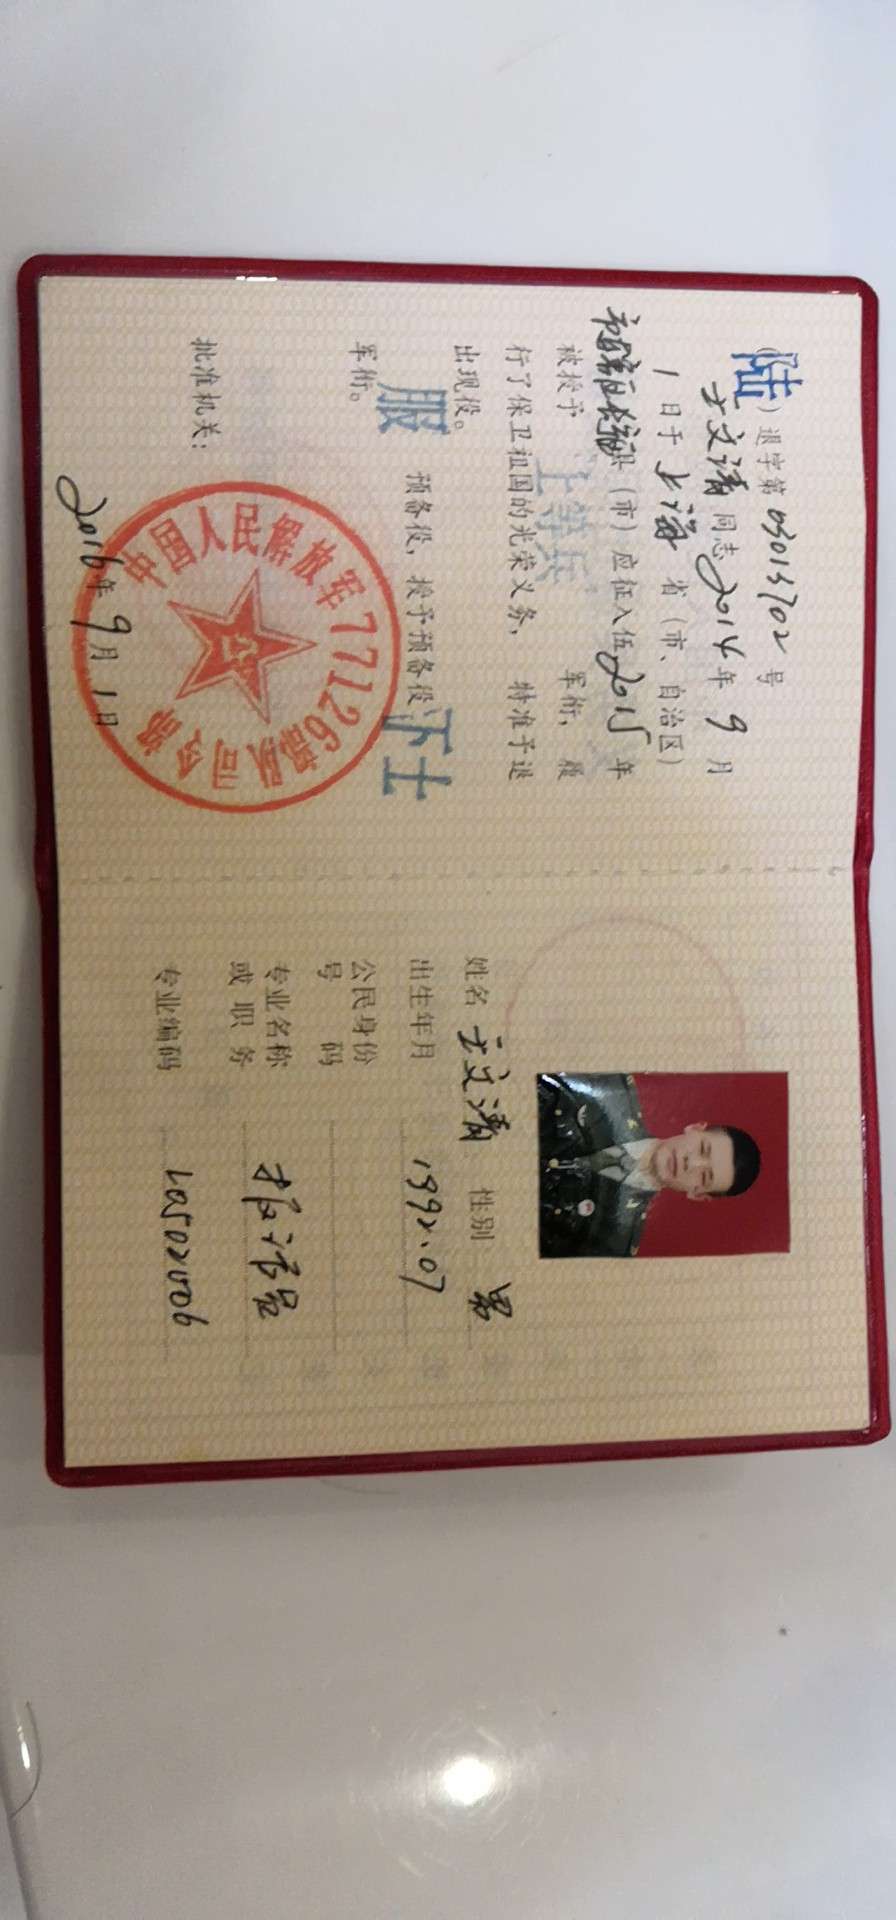 （陆）退字第 03013702 号
王文清 同志 2014 年 9 月
1 日于 上海 省（市、自治区）
县（市）应征入伍 2015 年
被授予 上等兵 军衔，履
行了保卫祖国的光荣义务，特准予退
出现役。
服 预备役，授予预备役 下士
军衔。
批准机关：
中国人民解放军77126部队司令部
2016 年 9 月 1 日
姓名 王文清 性别 男
出生年月 1992.07
公民身份
号码
专业名称
或职务
专业编码